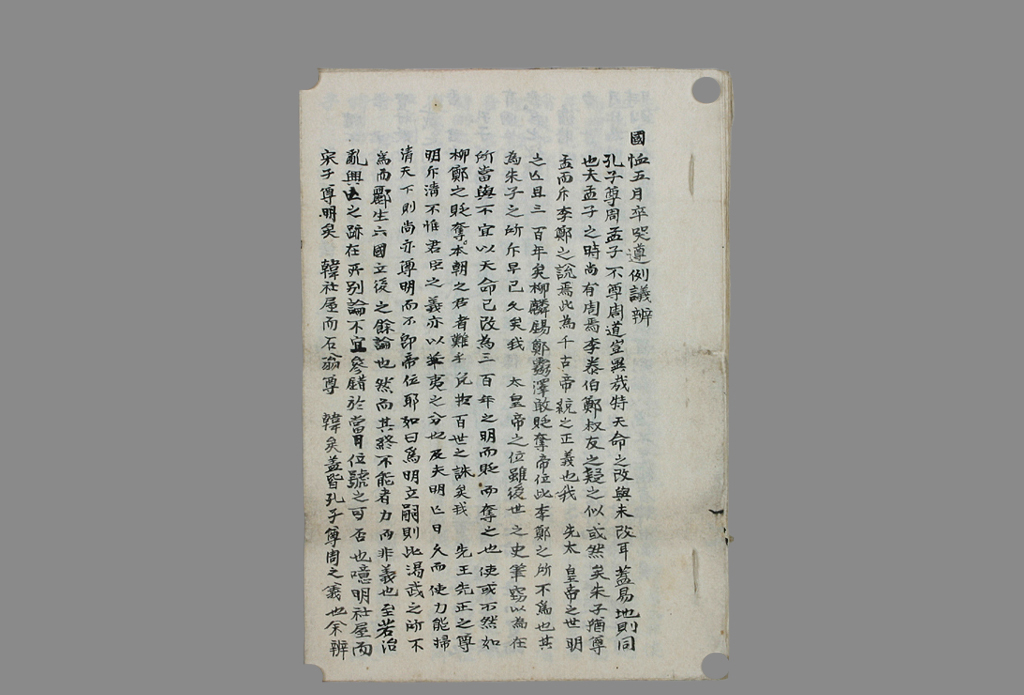 國恤五月卒哭遵例議辨
孔子尊周孟子不尊周道豈異哉特天命之改與未改耳蓋易地則同
也夫孟子之時尚有周焉李泰伯鄭叔友之疑之似或然矣朱子猶尊
孟而斥李鄭之說焉此為千古帝統之正義也我 先太皇帝之世明
之亡且三百年矣柳麟錫鄭霽澤敢貶奪帝位此李鄭之所不為也其
為朱子之所斥早已久矣我 太皇帝之位雖後世之史筆竊以為在
所當與不宜以天命已改為三百年之明而貶而奪之也使或不然如
柳鄭之貶奪本朝之君者難乎免於百世之誅矣我 先王先正之尊
明斥清不惟君臣之義亦以華夷之分也及夫明亡日久而使力能掃
清天下則尚亦尊明而不卽帝位耶如曰爲明立嗣則此湯武之所不
爲而酈生六國立後之餘論也然而其終不能者力而非義也至若治
亂興亡之跡在所別論不宜參錯於當日位號之可否也噫明社屋而
宋子尊明矣 韓社屋而石翁尊 韓矣蓋皆孔子尊周之義也余辨